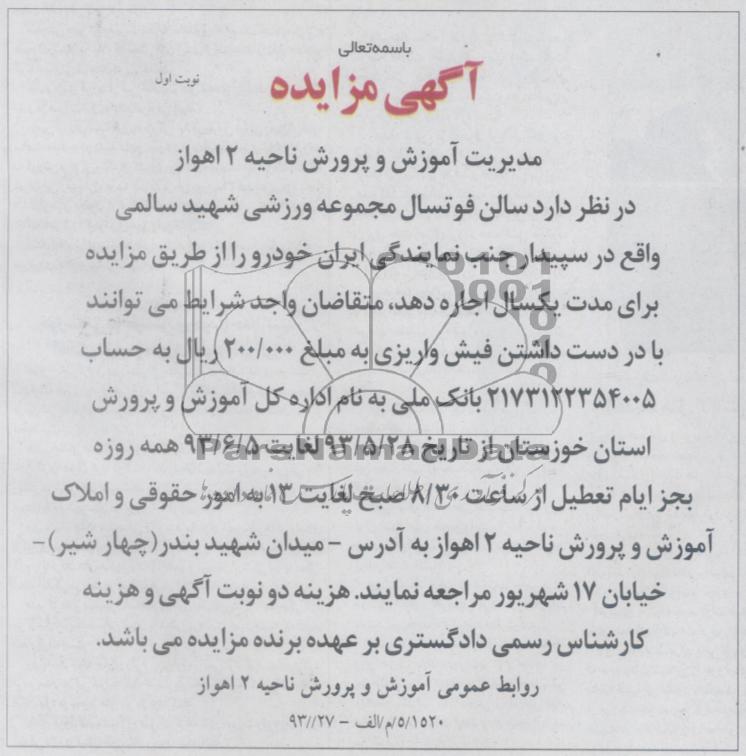 باسمه‌تعالی
آگهی مزایده
نوبت اول
مدیریت آموزش و پرورش ناحیه ۲ اهواز
در نظر دارد سالن فوتسال مجموعه ورزشی شهید سالمی
واقع در سپیدار جنب نمایندگی ایران خودرو را از طریق مزایده
برای مدت یکسال اجاره دهد، متقاضان واجد شرایط می توانند
با در دست داشتن فیش واریزی به مبلغ ۲۰۰/۰۰۰ ریال به حساب
۲۱۷۳۱۲۲۳۵۴۰۰۵ بانک ملی به نام اداره کل آموزش و پرورش
استان خوزستان از تاریخ ۹۳/۵/۲۸ لغایت ۹۳/۶/۵ همه روزه
بجز ایام تعطیل از ساعت ۸/۳۰ صبح لغایت ۱۳ به امور حقوقی و املاک
آموزش و پرورش ناحیه ۲ اهواز به آدرس – میدان شهید بندر(چهار شیر)–
خیابان ۱۷ شهریور مراجعه نمایند. هزینه دو نوبت آگهی و هزینه
کارشناس رسمی دادگستری بر عهده برنده مزایده می باشد.
روابط عمومی آموزش و پرورش ناحیه ۲ اهواز
۵/۱۵۲۰/م/الف – ۹۳//۲۷